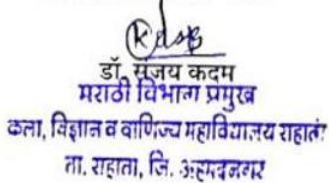 डॉ. संजय कदम
मराठी विभाग प्रमुख
कला, विज्ञान व वाणिज्य महाविद्यालय राहाता
ता. राहाता, जि. अहमदनगर